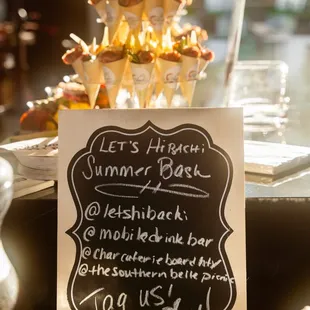 LET'S HIBACHI
Summer Bash
@letshibachi
@mobiledrinkbar
@charcuterieboard
@thesouthernbellepicnic
Tag US!